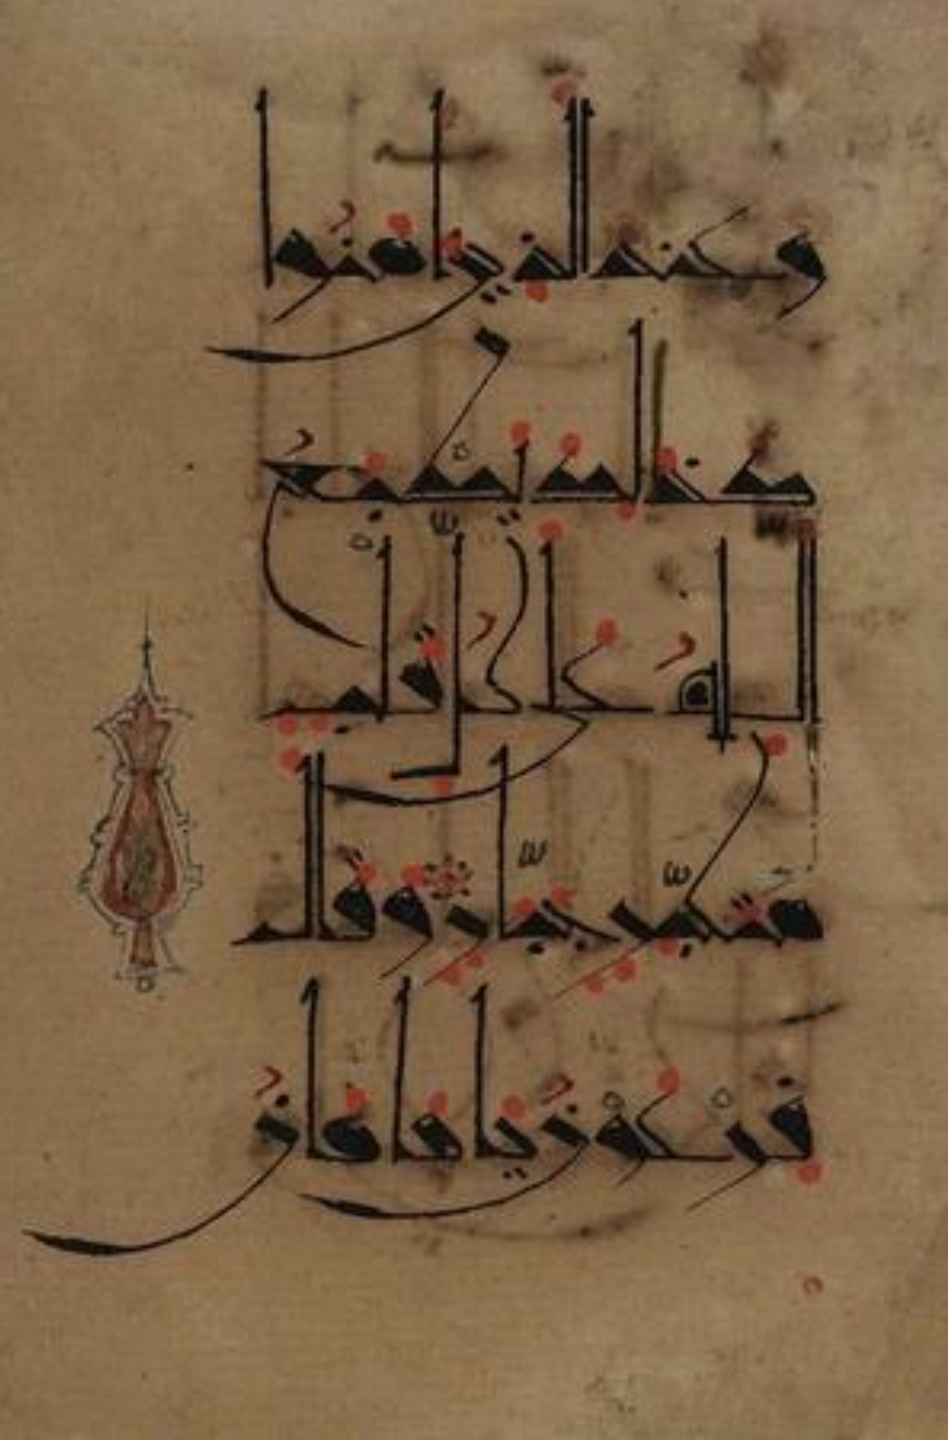 وعند الذين امنوا
كذلك يطبع
الله على كل قلب
متكبر جبار وقال
فرعون يا هامان